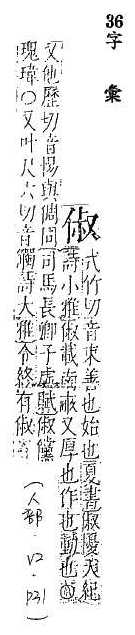 36字彙
俶 式竹切音束善也始也夏書俶擾天紀
詩小雅俶載南畝又厚也作也動也
又他歷切音惕與倜同司馬長卿子虛賦俶儻
瑰瑋〇又叶尺六切音觸詩大雅令終有俶
(人部.V2.P31)